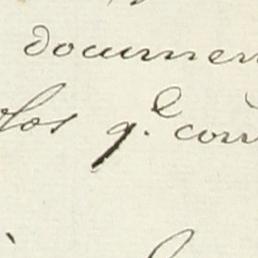 documen
los q.e con